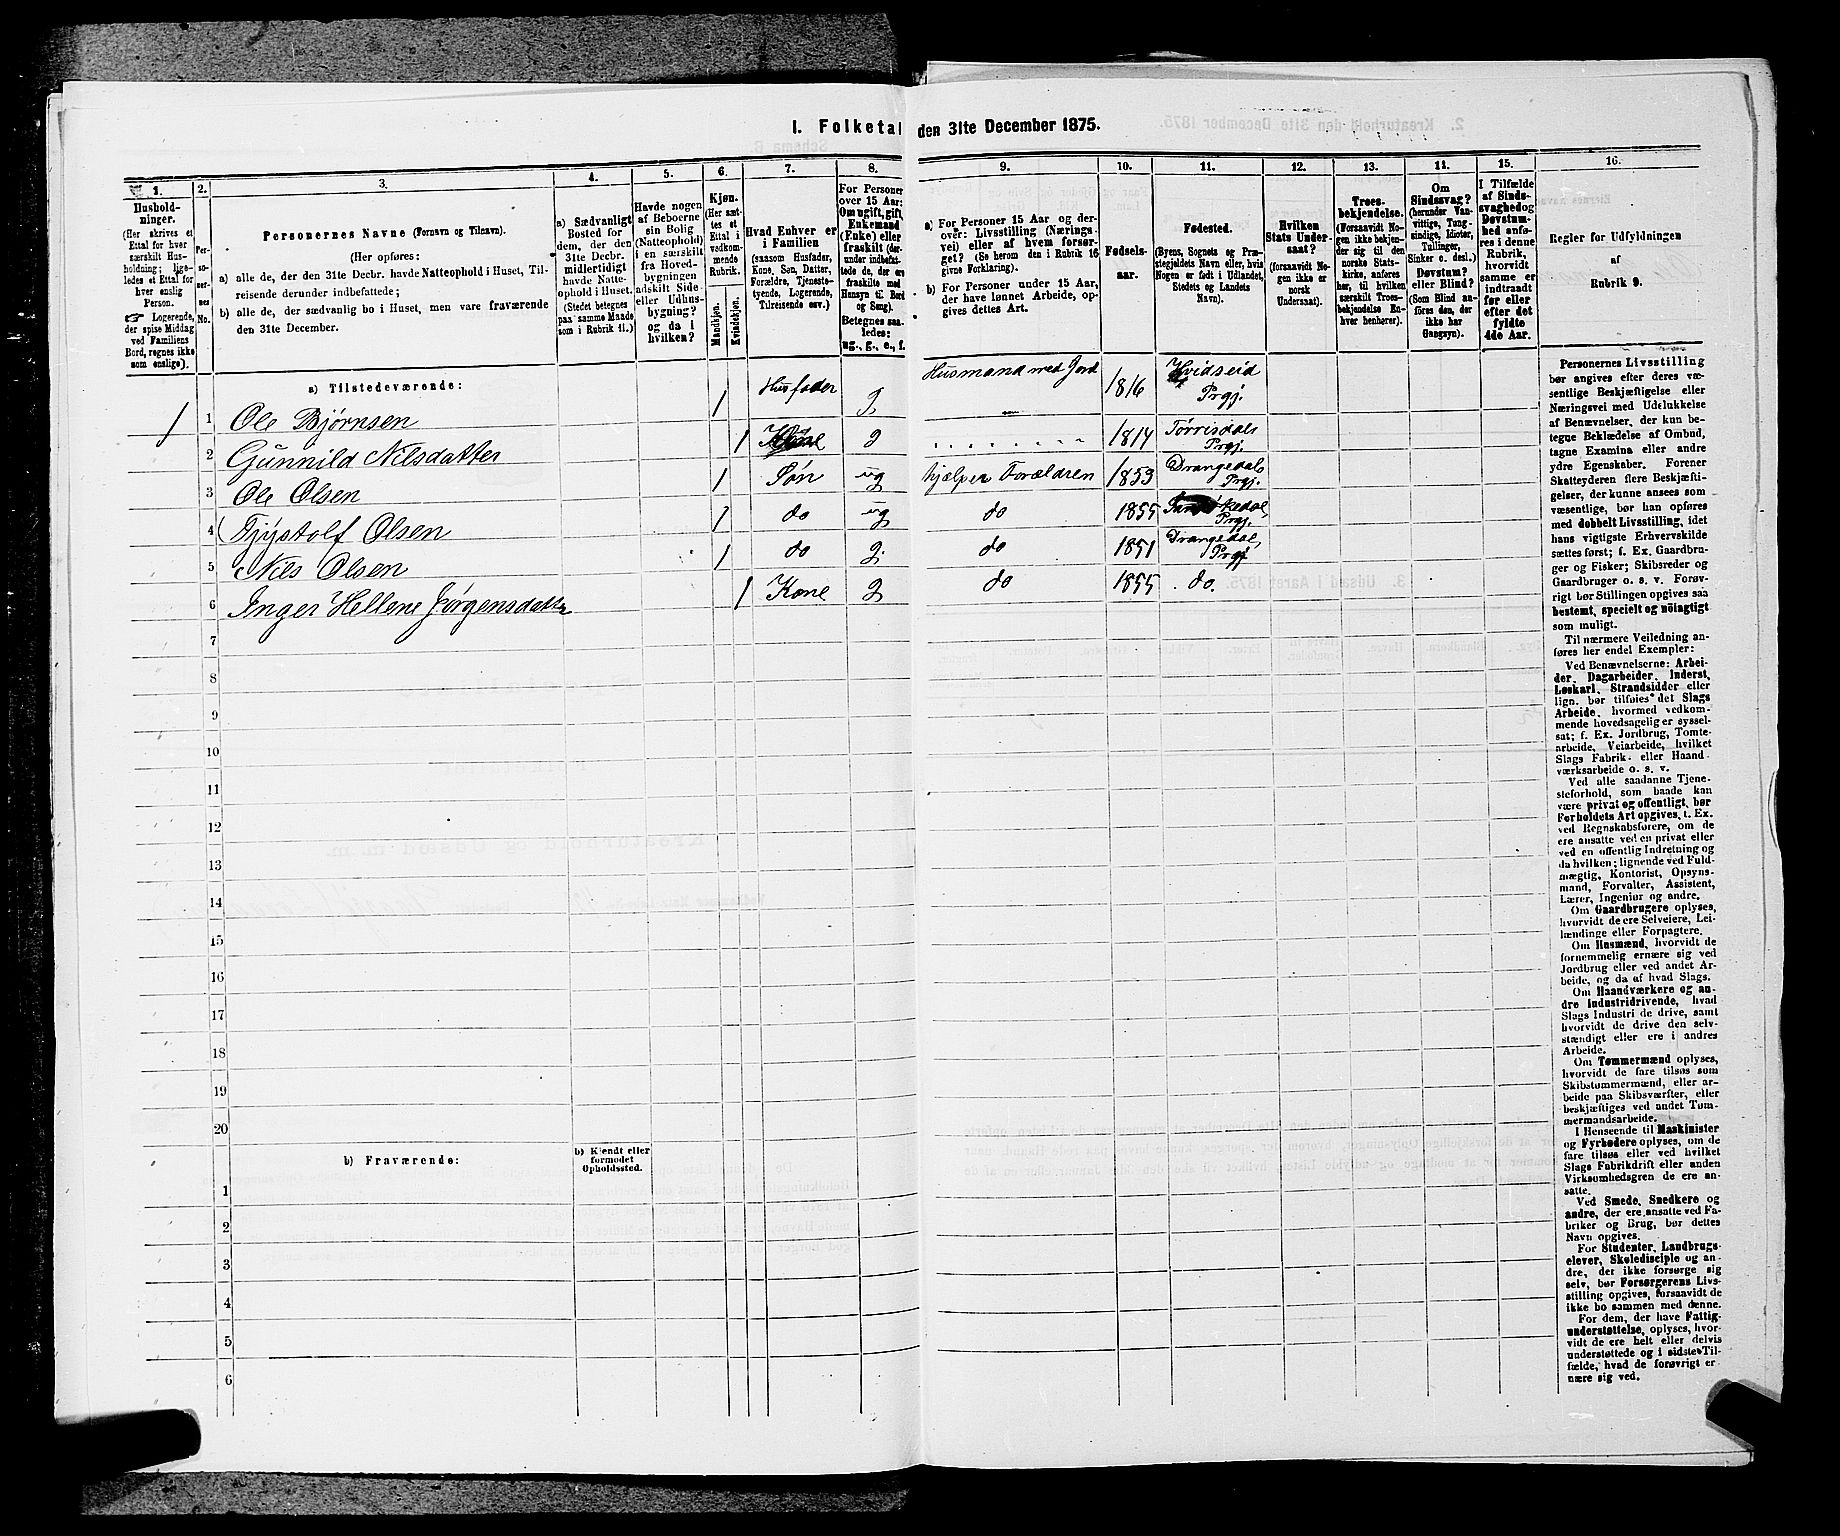 I. Folketal den 31te December 1875.
1. 2. 3. 4. 5. 6. 7. 8. 9. 10. 11. 12. 13. 14. 15. 16.
Hushold-
ninger.
(Her skrives et
Ettal for hver
særskilt Hus-
holdning; lige-
ledes et Ettal for
hver enslig
Person.
☞ Logerende,
der spise Middag
ved Familiens
Bord, regnes ikke
som enslige).
Per-
so-
ner-
nes
No.
Personernes Navne (Fornavn og Tilnavn).
(Her opføres:
a) alle de, der den 31te Decbr. havde Natteophold i Huset, Til-
reisende derunder indbefattede;
b) alle de, der sædvanlig bo i Huset, men vare fraværende
den 31te December.
a) Sædvanligt
Bosted for
dem, der den
31te Decbr.
midlertidigt
havde Natte-
ophold i Huset.
(Stedet betegnes
paa samme Maade
som i Rubrik 11.)
Havde nogen
af Beboerne
sin Bolig
(Natteophold)
i en særskilt
fra Hoved-
bygningen
adskilt Side-
eller Udhus-
bygning?
og da i
hvilken?
Kjøn.
(Her sæt-
tes et
Ettal i
vedkom-
mende
Rubrik.
Mandkjøn.
Kvindekjøn.
Hvad Enhver er
i Familien
(saasom Husfader,
Kone, Søn, Datter,
Forældre, Tjeneste-
tyende, Logerende,
Tilreisende osv.)
For Personer
over 15 Aar:
Om ugift, gift,
Enkemand
(Enke) eller
fraskilt (der-
under indbefat-
tede de, der ere
fraskilte med
Hensyn til Bord
og Seng).
Betegnes saa-
ledes:
ug., g., e., f.
a) For Personer 15 Aar og der-
over: Livsstilling (Nærings-
vei) eller af hvem forsør-
get? (Se herom den i Rubrik 16
givne Forklaring).
b) For Personer under 15 Aar,
der have lønnet Arbeide, op-
gives dettes Art.
Fødsels-
aar.
Fødested.
(Byens, Sognets og Præ-
stegjeldets Navn eller, hvis
Nogen er født i Udlandet,
Stedets og Landets
Navn).
Hvilken
Stats Under-
saat?
(forsaavidt No-
gen ikke er
norsk
Undersaat).
Troes-
bekjendelse.
(Forsaavidt No-
gen ikke bekjen-
der sig til den
norske Stats-
kirke, anføres
her, til hvilken
særskilt Troes-
bekjendelse En-
hver henhører).
Om
Sindssvag?
(herunder Van-
vittige, Tung-
sindige, Idioter,
Tullinger,
Sinker o. desl.)
Døvstum?
eller Blind?
(Som Blind an-
føres den, der
ikke har
Gangsyn).
I Tilfælde
af Sinds-
svaghed og
Døvstum-
hed anfø-
res i denne
Rubrik,
hvorvidt
samme er
indtraadt
før eller
efter det
fyldte
4de Aar.
Regler for Udfyldningen
af
Rubrik 9.
a) Tilstedeværende:
1 1 Ole Bjørnsen 1 Husfader g Husmand med Jord 1816 Hvidseid Prgj.
2 Gunnild Nilsdatter 1 Kone g 1814 Tørrisdals Prgj.
3 Ole Olsen 1 Søn ug hjælper Forældren 1853 Drangedals Prgj.
4 Tjøstolf Olsen 1 do ug do 1855 Prgj.
5 Nils Olsen 1 do g. do 1851 Drangedal, Prgj
6 Inger Hellene Jørgensdatte 1 Kone g do 1855 do.
7
8
9
10
11
12
13
14
15
16
17
18
19
20
b) Fraværende:
b) Kjendt eller
formodet
Opholdssted.
1
2
3
4
5
6
Personernes Livsstilling
bør angives efter deres væ-
sentlige Beskjæftigelse eller
Næringsvei med Udelukkelse
af Benævnelser, der kun be-
tegne Beklædelse af Ombud,
tagne Examina eller andre
ydre Egenskaber. Forener
Skatteyderen flere Beskjæfti-
gelser, der kunne ansees som
væsentlige, bør han opføres
med dobbelt Livsstilling, idet
hans vigtigste Erhvervskilde
sættes først; f. Ex. Gaardbru-
ger og Fisker; Skibsreder og
Gaardbruger o. s. v. Forøv-
rigt bør Stillingen opgives saa
bestemt, specielt og nøiagtigt
som muligt.
Til nærmere Veiledning an-
føres her endel Exempler:
Ved Benævnelserne: Arbei-
der, Dagarbeider, Inderst,
Løskarl, Strandsidder eller
lign. bør tilføies det Slags
Arbeide, hvormed vedkom-
mende hovedsagelig er syssel-
sat; f. Ex. Jordbrug, Tomte-
arbeide, Veiarbeide, hvilket
Slags Fabrik- eller Haand-
værksarbeide o. s. v.
Ved alle saadanne Tjene-
steforhold, som baade kan
være privat og offentligt, bør
Forholdets Art opgives, t. Ex.
ved Regnskabsførere, om de
ere ansatte ved en privat eller
ved en offentlig Indretning og
da hvilken; lignende ved Fuld-
mægtig, Kontorist, Opsyns-
mand, Forvalter, Assistent,
Lærer, Ingeniør og andre.
Om Gaardbrugere oplyses,
hvorvidt de ere Selveiere, Lei-
lændinge eller Forpagtere.
Om Husmænd, hvorvidt de
fornemmelig ernære sig ved
Jordbrug eller ved andet Ar-
beide, og da af hvad Slags.
Om Haandværkere og an-
dre Industridrivende, hvad
Slags Industri de drive, samt
hvorvidt de drive den selv-
stændigt eller ere i andres
Arbeide.
Om Tømmermænd oplyses,
hvorvidt de fare tilsøs som
Skibstømmermænd, eller ar-
beide paa Skibsværfter, eller
beskjæftiges ved andet Tøm-
mermandsarbeide.
I Henseende til Maskinister
og Fyrbødere oplyses, om de
fare tilsøs eller ved hvilket
Slags Fabrikdrift eller anden
Virksomhedsgren de ere an-
satte.
Ved Smede, Snedkere og
andre, der ere ansatte ved Fa-
briker og Brug, bør dettes
Navn opgives.
For Studenter, Landbrugs-
elever, Skoledisciple og an-
dre, der ikke forsørge sig
selv, bør Forsørgerens Livs-
stilling opgives, forsaavidt de
ikke bo sammen med denne.
For dem, der have Fattig-
understøttelse, oplyses, hvor-
vidt de ere helt eller delvis
understøttede og i sidste Til-
fælde, hvad de forøvrigt er-
nære sig ved.